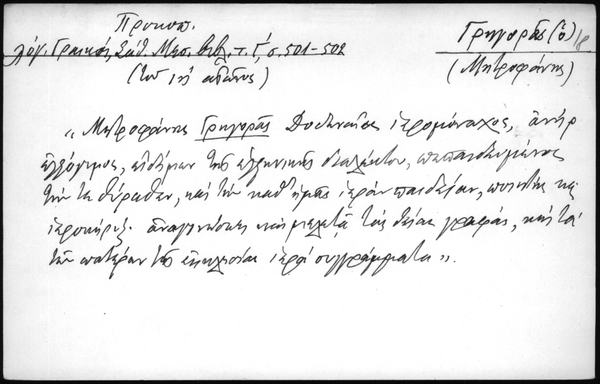 Προκοπ.
λόγ. Γραικοί, Σάθ. Μεσ. Βιβλ. τ. Γ΄, σ. 501-502
(Τοῦ ιη΄ αἰῶνος)
Γρηγορᾶς (ὁ)
(Μητροφάνης)
"Μητροφάνης Γρηγορᾶς Δωδωναῖος ἱερομόναχος, ἀνὴρ
ἐλλόγιμος, εἰδήμων τῆς ἑλληνικῆς διαλέκτου, πεπαιδευμένος
τήν τε θύραθεν, καὶ τὴν καθ' ἡμᾶς ἱερὰν παιδείαν, ποιητὴς καὶ
ἱεροκήρυξ· ἀναγινώσκει καὶ μελετᾷ τὰς θείας γραφάς, καὶ τὰ
τῶν πατέρων τῆς ἐκκλησίας ἱερὰ συγγράμματα".